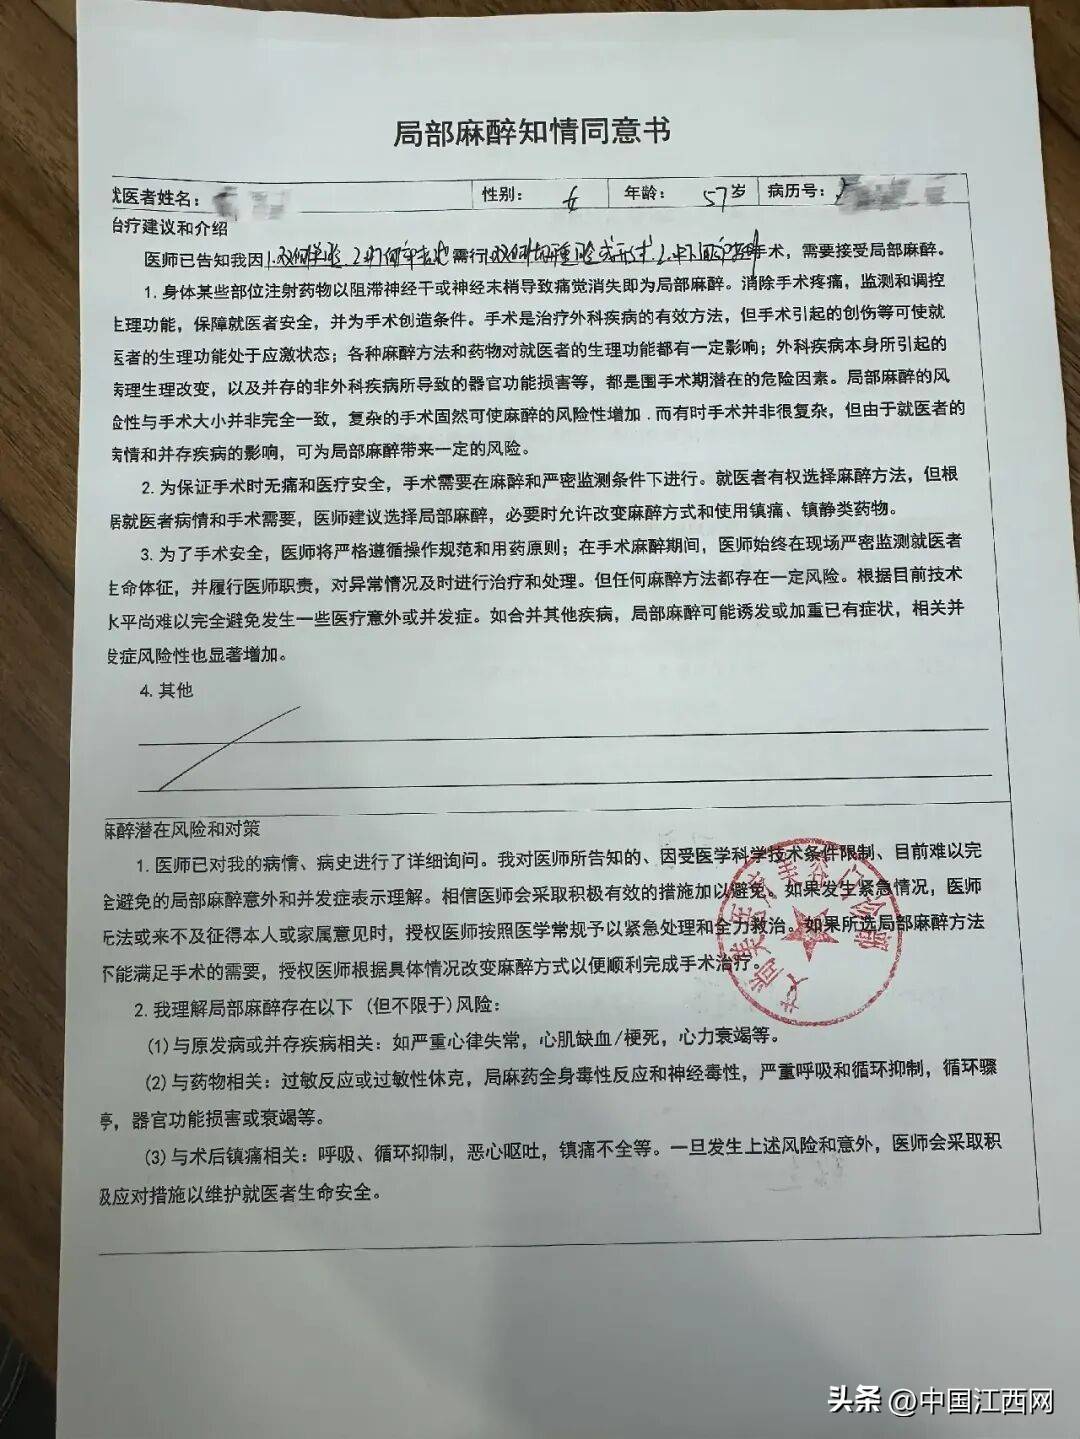 局部麻醉知情同意书
就医者姓名： 性别： 女 年龄： 57岁 病历号：
治疗建议和介绍
医师已告知我因 需行 手术，需要接受局部麻醉。
1.身体某些部位注射药物以阻滞神经干或神经末梢导致痛觉消失即为局部麻醉。消除手术疼痛，监测和调控
生理功能，保障就医者安全，并为手术创造条件。手术是治疗外科疾病的有效方法，但手术引起的创伤等可使就
医者的生理功能处于应激状态；各种麻醉方法和药物对就医者的生理功能都有一定影响；外科疾病本身所引起的
病理生理改变，以及并存的非外科疾病所导致的器官功能损害等，都是围手术期潜在的危险因素。局部麻醉的风
险性与手术大小并非完全一致，复杂的手术固然可使麻醉的风险性增加.而有时手术并非很复杂，但由于就医者的
病情和并存疾病的影响，可为局部麻醉带来一定的风险。
2.为保证手术时无痛和医疗安全，手术需要在麻醉和严密监测条件下进行。就医者有权选择麻醉方法，但根
据就医者病情和手术需要，医师建议选择局部麻醉，必要时允许改变麻醉方式和使用镇痛、镇静类药物。
3.为了手术安全，医师将严格遵循操作规范和用药原则；在手术麻醉期间，医师始终在现场严密监测就医者
生命体征，并履行医师职责，对异常情况及时进行治疗和处理。但任何麻醉方法都存在一定风险。根据目前技术
水平尚难以完全避免发生一些医疗意外或并发症。如合并其他疾病，局部麻醉可能诱发或加重已有症状，相关并
发症风险性也显著增加。
4.其他
麻醉潜在风险和对策
1.医师已对我的病情、病史进行了详细询问。我对医师所告知的、因受医学科学技术条件限制、目前难以完
全避免的局部麻醉意外和并发症表示理解。相信医师会采取积极有效的措施加以避免。如果发生紧急情况，医师
无法或来不及征得本人或家属意见时，授权医师按照医学常规予以紧急处理和全力救治。如果所选局部麻醉方法
不能满足手术的需要，授权医师根据具体情况改变麻醉方式以便顺利完成手术治疗。
2.我理解局部麻醉存在以下（但不限于）风险：
(1)与原发病或并存疾病相关：如严重心律失常，心肌缺血/梗死，心力衰竭等。
(2)与药物相关：过敏反应或过敏性休克，局麻药全身毒性反应和神经毒性，严重呼吸和循环抑制，循环骤
停，器官功能损害或衰竭等。
(3)与术后镇痛相关：呼吸、循环抑制，恶心呕吐，镇痛不全等。一旦发生上述风险和意外，医师会采取积
极应对措施以维护就医者生命安全。
头条 @中国江西网